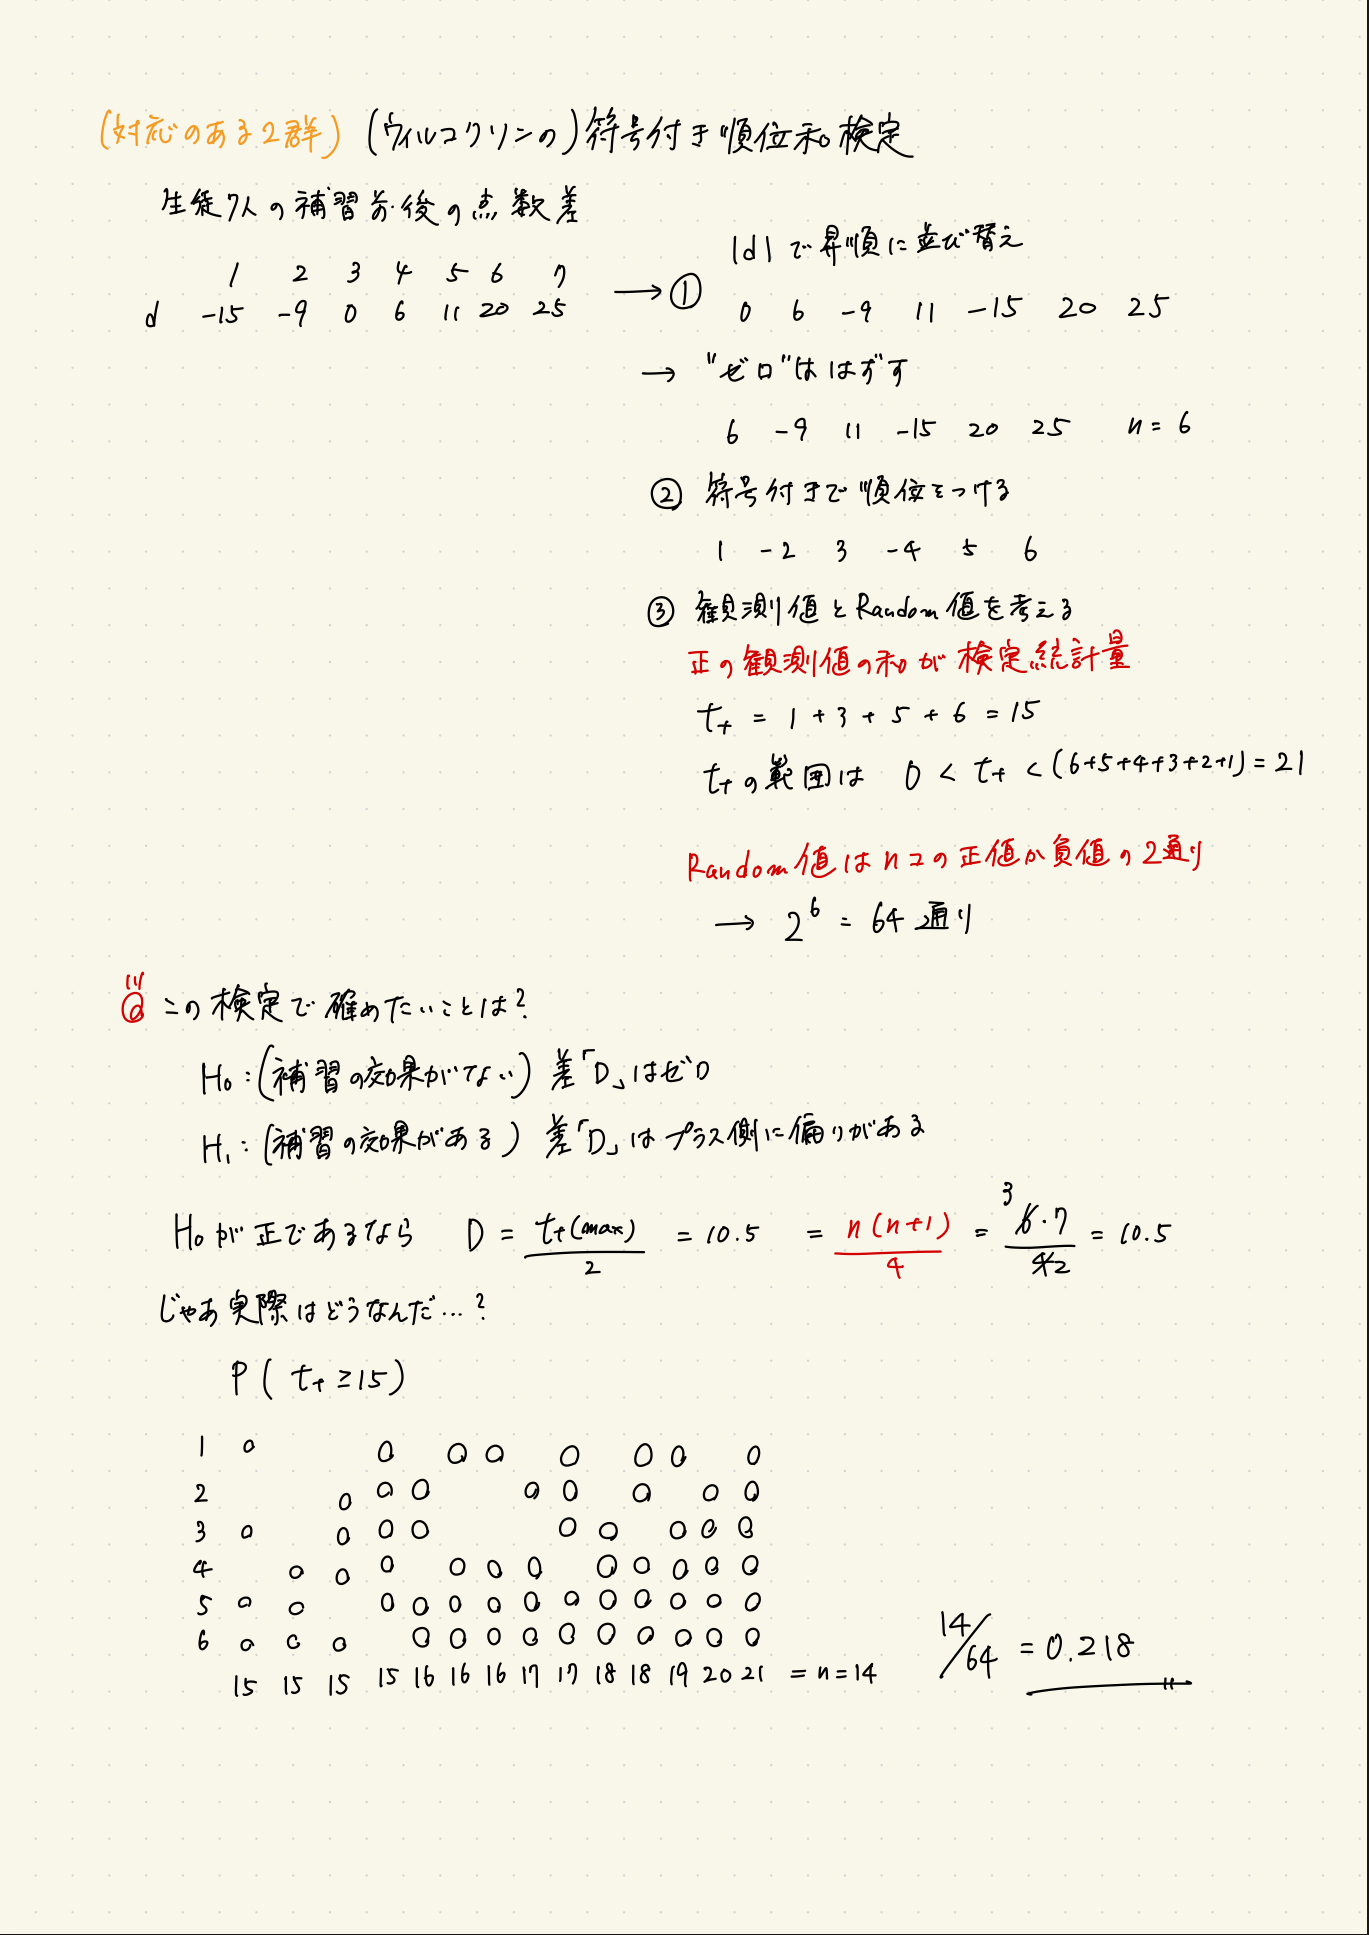 (対応のある2群) (ウィルコクソンの)符号付き順位和検定
生徒7人の補習前・後の点数差
1 2 3 4 5 6 7
d -15 -9 0 6 11 20 25
→ ① |d|で昇順に並び替え
0 6 -9 11 -15 20 25
→ "ゼロ"ははずす
6 -9 11 -15 20 25 n = 6
② 符号付きで順位をつける
1 -2 3 -4 5 6
③ 観測値とRandom値を考える
正の観測値の和が検定統計量
t+ = 1 + 3 + 5 + 6 = 15
t+の範囲は 0 < t+ < (6+5+4+3+2+1) = 21
Random値はnコの正値か負値の2通り
→ 2^6 = 64通り
Q この検定で確めたいことは?
H0 : (補習の効果がない) 差「D」はゼロ
H1 : (補習の効果がある) 差「D」はプラス側に偏りがある
H0が正であるなら D = t+(max)/2 = 10.5 = n(n+1)/4 = 3 6・7/4 2 = 10.5
じゃあ実際はどうなんだ…?
P( t+ ≥ 15)
1 o o o o o o o o
2 o o o o o o o o
3 o o o o o o o o o
4 o o o o o o o o o o o
5 o o o o o o o o o o o o o
6 o o o o o o o o o o o o o
15 15 15 15 16 16 16 17 17 18 18 19 20 21 = n = 14
14/64 = 0.218